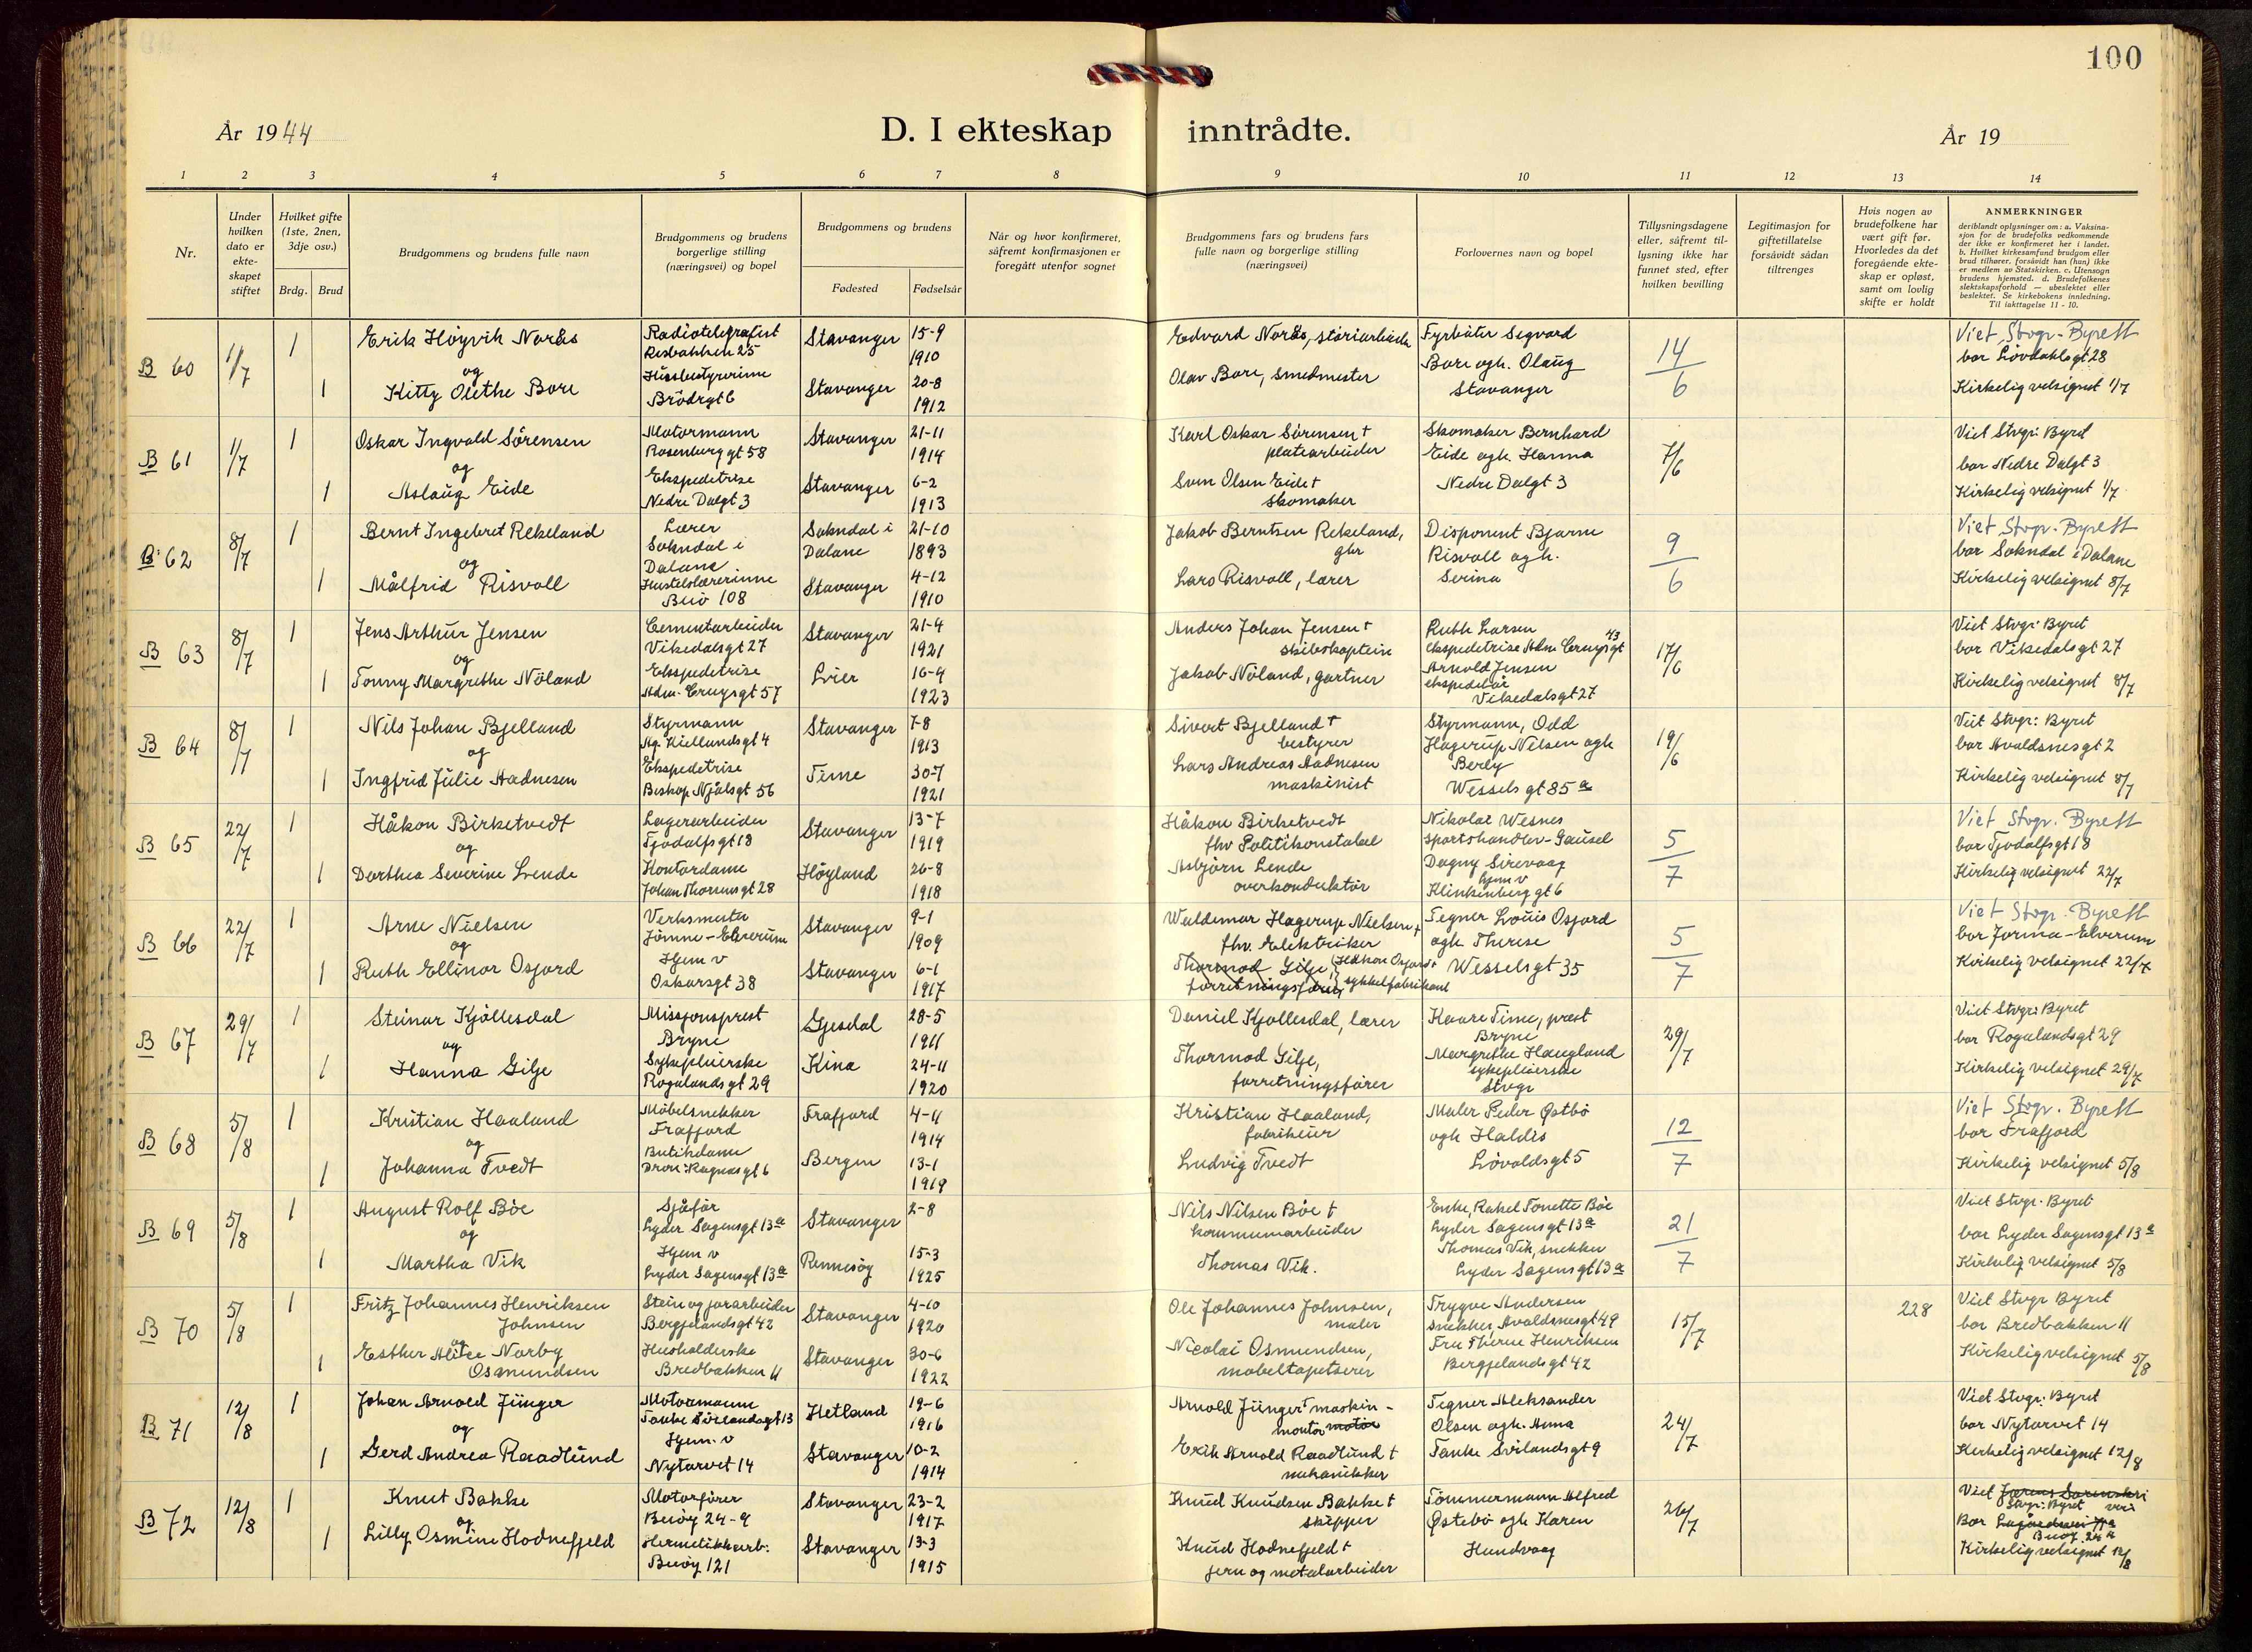 100
År 1944
D. I ekteskap inntrådte.
År 19
1 2 3 4 5 6 7 8 9 10 11 12 13 14
Nr.
Under hvilken dato er ekte- skapet stiftet
Hvilket gifte (1ste, 2nen, 3dje osv.)
Brdg. Brud
Brudgommens og brudens fulle navn
Brudgommens og brudens borgerlige stilling (næringsvei) og bopel
Brudgommens og brudens
Fødested Fødselsår
Når og hvor konfirmeret, såfremt konfirmasjonen er foregått utenfor sognet
Brudgommens fars og brudens fars fulle navn og borgerlige stilling (næringsvei)
Forlovernes navn og bopel
Tillysningsdagene eller, såfremt til- lysning ikke har funnet sted, efter hvilken bevilling
Legitimasjon for giftetillatelse forsåvidt sådan tiltrenges
Hvis nogen av brudefolkene har vært gift før. Hvorledes da det foregående ekte- skap er opløst, samt om lovlig skifte er holdt
ANMERKNINGER
deriblandt oplysninger om: a. Vaksina- sjon for de brudefolks vedkommende der ikke er konfirmeret her i landet. b. Hvilket kirkesamfund brudgom eller brud tilhører, forsåvidt han (hun) ikke er medlem av Statskirken. c. Utensogn brudens hjemsted. d. Brudefolkenes slektskapsforhold — ubeslektet eller beslektet. Se kirkebokens innledning. Til iakttagelse 11 - 10.
B 60 1/7 1 Erik Höyvik Norås Radiotelegrafist Stavanger 15-9 Edvard Norås, Fyrbøter Segvard 14 Viet Stvgr. Byrett
Resbakken 25 1910 bor Lövdahlsgt 28
og
1 Kitty Olethe Bore Husbestyrerinne Brödrgt 6 Stavanger 20-8 1912 Olav Bore, smedmester Bore ogh. Olaug Stavanger 6 Kirkelig velsignet 1/7
B 61 1/7 1 Oskar Ingvald Sörensen Motormann Rosenberggt 58 Stavanger 21-11 1914 Karl Oskar Sörensen † platearbeider Skomaker Bernhard Eide ogh. Hanna Nedre Dalgt 3 7/6 Viet Stvgr. Byret
og
1 Aslaug Eide Ekspeditrise Nedre Dalgt 3 Stavanger 6-2 1913 Sven Olsen Eide † skomaker bor Nedre Dalgt 3 Kirkelig velsignet 1/7
B 62 8/7 1 Bernt Ingebret Rekeland Lærer Sokndal i Dalane Sokndal i Dalane 21-10 1893 Jakob Berntsen Rekeland, gbr Disponent Bjarne Risvoll ogh. Serina 9 6 Viet Stvgr. Byrett
og
1 Målfrid Risvoll Buö 108 Stavanger 4-12 1910 Lars Risvoll, lærer bor Sokndal i Dalane Kirkelig velsignet 8/7
B 63 8/7 1 Jens Arthur Jensen Cementarbeider Vikedalsgt 27 Stavanger 21-4 1921 Anders Johan Jensen † skibskaptein Ruth Larsen ekspeditrise Adm. Cruysgt 43 17/6 Viet Stvgr. Byret
og
1 Tonny Margrethe Nöland Ekspeditrise Adm. Cruysgt 57 Lier 16-9 1923 Jakob Nöland, gartner Arnold Jensen ekspeditör Vikedalsgt 27 bor Vikedalsgt 27 Kirkelig velsignet 8/7
B 64 8/7 1 Nils Johan Bjelland Styrmann Ag. Kiellandsgt 4 Stavanger 7-8 1913 Sivert Bjelland † bestyrer Styrmann, Odd Hagerup Nelsen ogh Berly Wesselsgt 85 a 19/6 Viet Stvgr. Byret
og
1 Ingfrid Julie Aadnesen Ekspeditrise Biskop Njålsgt 56 Time 30-7 1921 Lars Andreas Aadnesen maskinist bor Avaldsnesgt 2 Kirkelig velsignet 8/7
B 65 22/7 1 Håkon Birketvedt Lagerarbeider Tjodolfsgt 18 Stavanger 13-7 1919 Håkon Birketvedt fhv Politikonstabel Nikolai Wesnes sportshandler - Gausel 5 7 Viet Stvgr. Byrett
og
1 Dorthea Severine Lende Kontordame Johan Thorsensgt 28 Höyland 26-8 1918 Asbjørn Lende overkonduktör Dagny Sirevaag hjem v Klinkenberggt 6 bor Tjodolfsgt 18 Kirkelig velsignet 22/7
B 66 22/7 1 Arne Nielsen Verksmester Jömne - Elverum Stavanger 9-1 1909 Waldemar Hagerup Nielsen † fhv. Elektriker Tegner Louis Osjord ogh. Therese Wesselsgt 35 5 7 Viet Stvgr. Byrett
og
1 Ruth Ellinor Osjord Hjem v Oskarsgt 38 Stavanger 6-1 1917 Thormod Gilje, forretningsförer Håkon Osjord † sykkelfabrikant bor Jorma - Elverum Kirkelig velsignet 22/7
B 67 29/7 1 Steinar Kjöllesdal Missjonsprest Bryne Gjesdal 28-5 1911 Daniel Kjöllesdal, lærer Kaare Time, prest Bryne 29/7 Viet Stvgr. Byret
og
1 Hanna Gilje Sykepleierske Rogalandsgt 29 Kina 24-11 1920 Thormod Gilje, forretningsförer Margrethe Haugland sykepleierske Stvgr bor Rogalandsgt 29 Kirkelig velsignet 29/7
B 68 5/8 1 Kristian Haaland Möbelsnekker Frafjord Frafjord 4-11 1914 Kristian Haaland, fabrikeier Maler Peder Østbö ogh Haldis Lövoldsgt 5 12 7 Viet Stvgr. Byrett
og
1 Johanna Tvedt Butikdame Dron. Ragnasgt 6 Bergen 13-1 1919 Ludvig Tvedt bor Frafjord Kirkelig velsignet 5/8
B 69 5/8 1 August Rolf Böe Sjåför Lyder Sagensgt 13 a Stavanger 2-8 Nils Nilsen Böe † kommunearbeider Enke, Rakel Tonette Böe Lyder Sagensgt 13 a 21 7 Viet Stvgr. Byret
og
1 Martha Vik Hjem v Lyder Sagensgt 13 a Rennesöy 15-3 1925 Thomas Vik. Thomas Vik, snekker Lyder Sagensgt 13 a bor Lyder Sagensgt 13 a Kirkelig velsignet 5/8
B 70 5/8 1 Fritz Johannes Henriksen Johnsen Stein og jorarbeider Bergjelandsgt 42 Stavanger 4-10 1920 Ole Johannes Johnsen, maler Trygve Andersen snekker, Avaldsnesgt 49 15/7 228 Viet Stvgr Byret
og
1 Esther Alice Norby Osmundsen Husholderske Bredbakken 11 Stavanger 30-6 1922 Nicolai Osmundsen, mobeltapetserer Fru Therese Henriksen Bergjelandsgt 42 bor Bredbakken 11 Kirkelig velsignet 5/8
B 71 12/8 1 Johan Arnold Jünger Motormann Tanke Svilandsgt 13 Hetland 19-6 1916 Arnold Jünger † maskin- montör Tegner Aleksander Olsen ogh. Anna Tanke Svilandsgt 9 24/7 Viet Stvgr. Byret
og
1 Gerd Andrea Raadlund Hjem. v Nytorvet 14 Stavanger 10-2 1914 Erik Arnold Raadlund † mekanikker bor Nytorvet 14 Kirkelig velsignet 12/8
B 72 12/8 1 Knut Bakke Motorförer Buöy 24-9 Stavanger 23-2 1917 Knud Knudsen Bakke † skipper Tömmermann Alfred Østebö ogh Karen Hundvaag 26/7 Viet Stvgr. Byret
og
1 Lilly Osmine Hodnefjeld Hermetikkarb. Buöy 121 Stavanger 13-3 1915 Knud Hodnefjeld † jern og metalarbeider Bor Buöy 24 Kirkelig velsignet 12/8